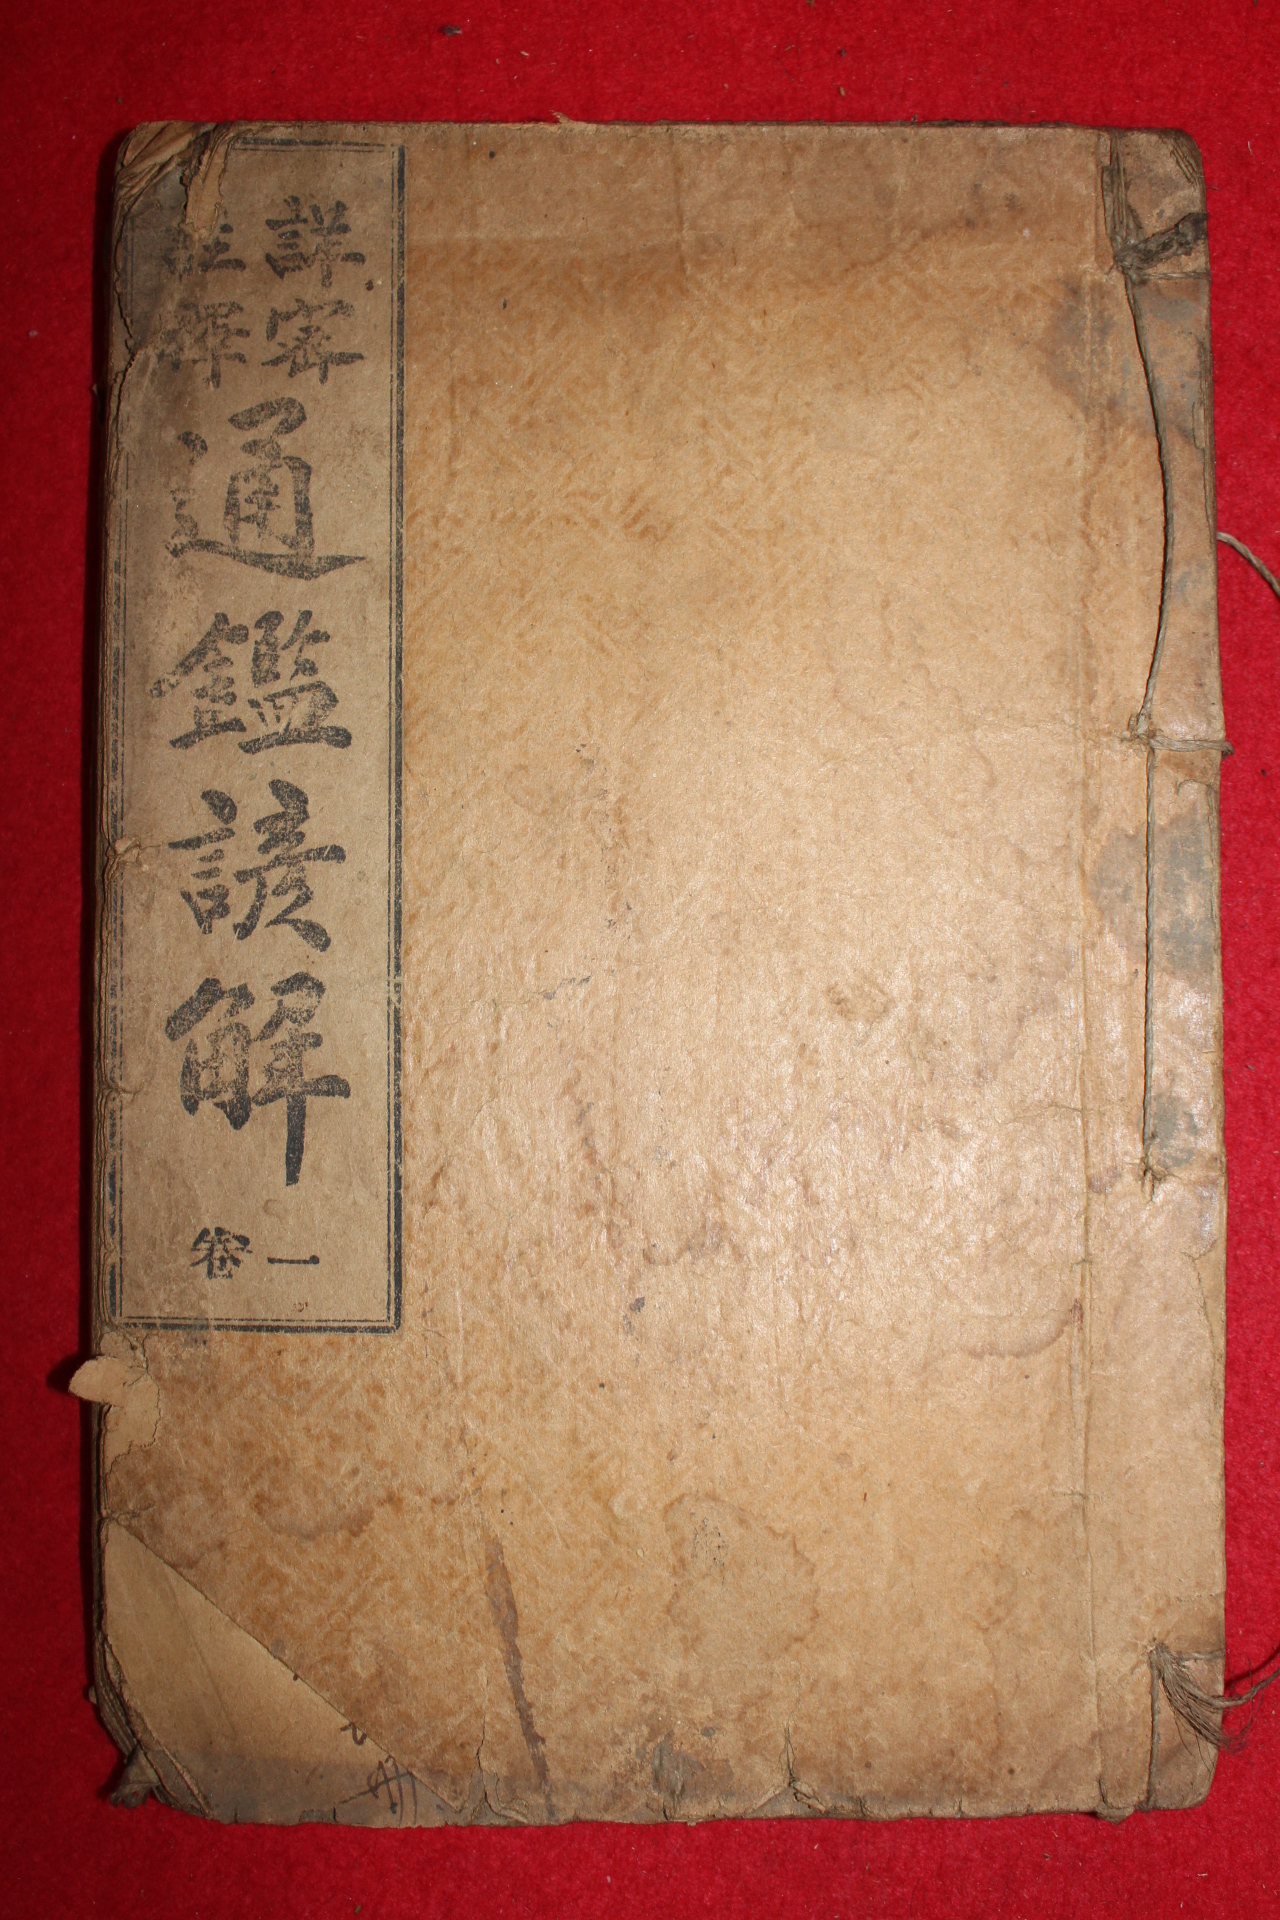 詳密
註釋
通鑑諺解
一卷